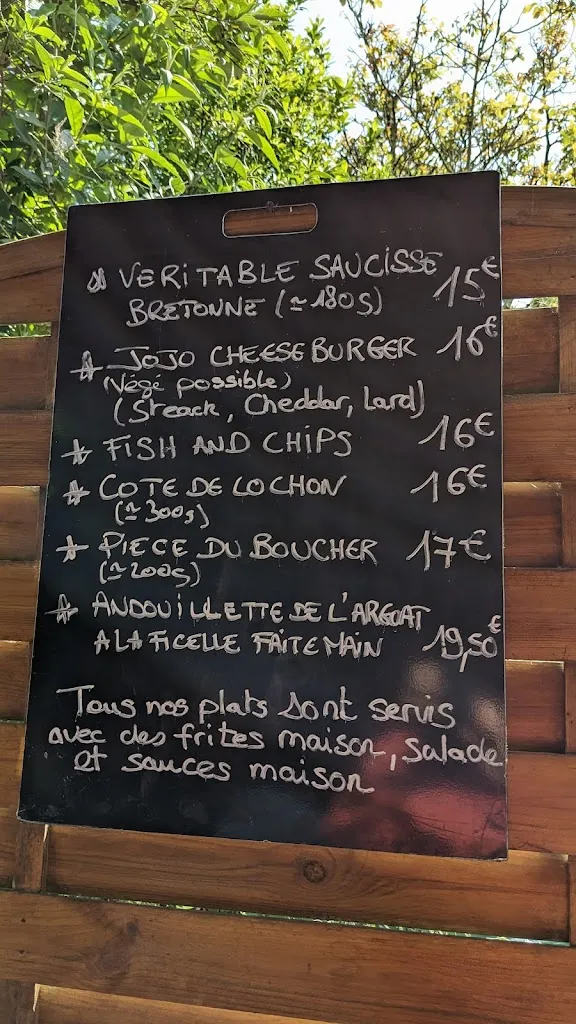 VERITABLE SAUCISSE 15€
BRETONNE (≃180g)
JOJO CHEESE BURGER 16€
(Végé possible)
(Streack, Cheddar, Lard)
FISH AND CHIPS 16€
COTE DE COCHON 16€
(≃300g)
PIECE DU BOUCHER 17€
(≃200g)
ANDOUILLETTE DE L'ARGOAT
A LA FICELLE FAITE MAIN 19,50€
Tous nos plats sont servis
avec des frites maison, salade
et sauces maison